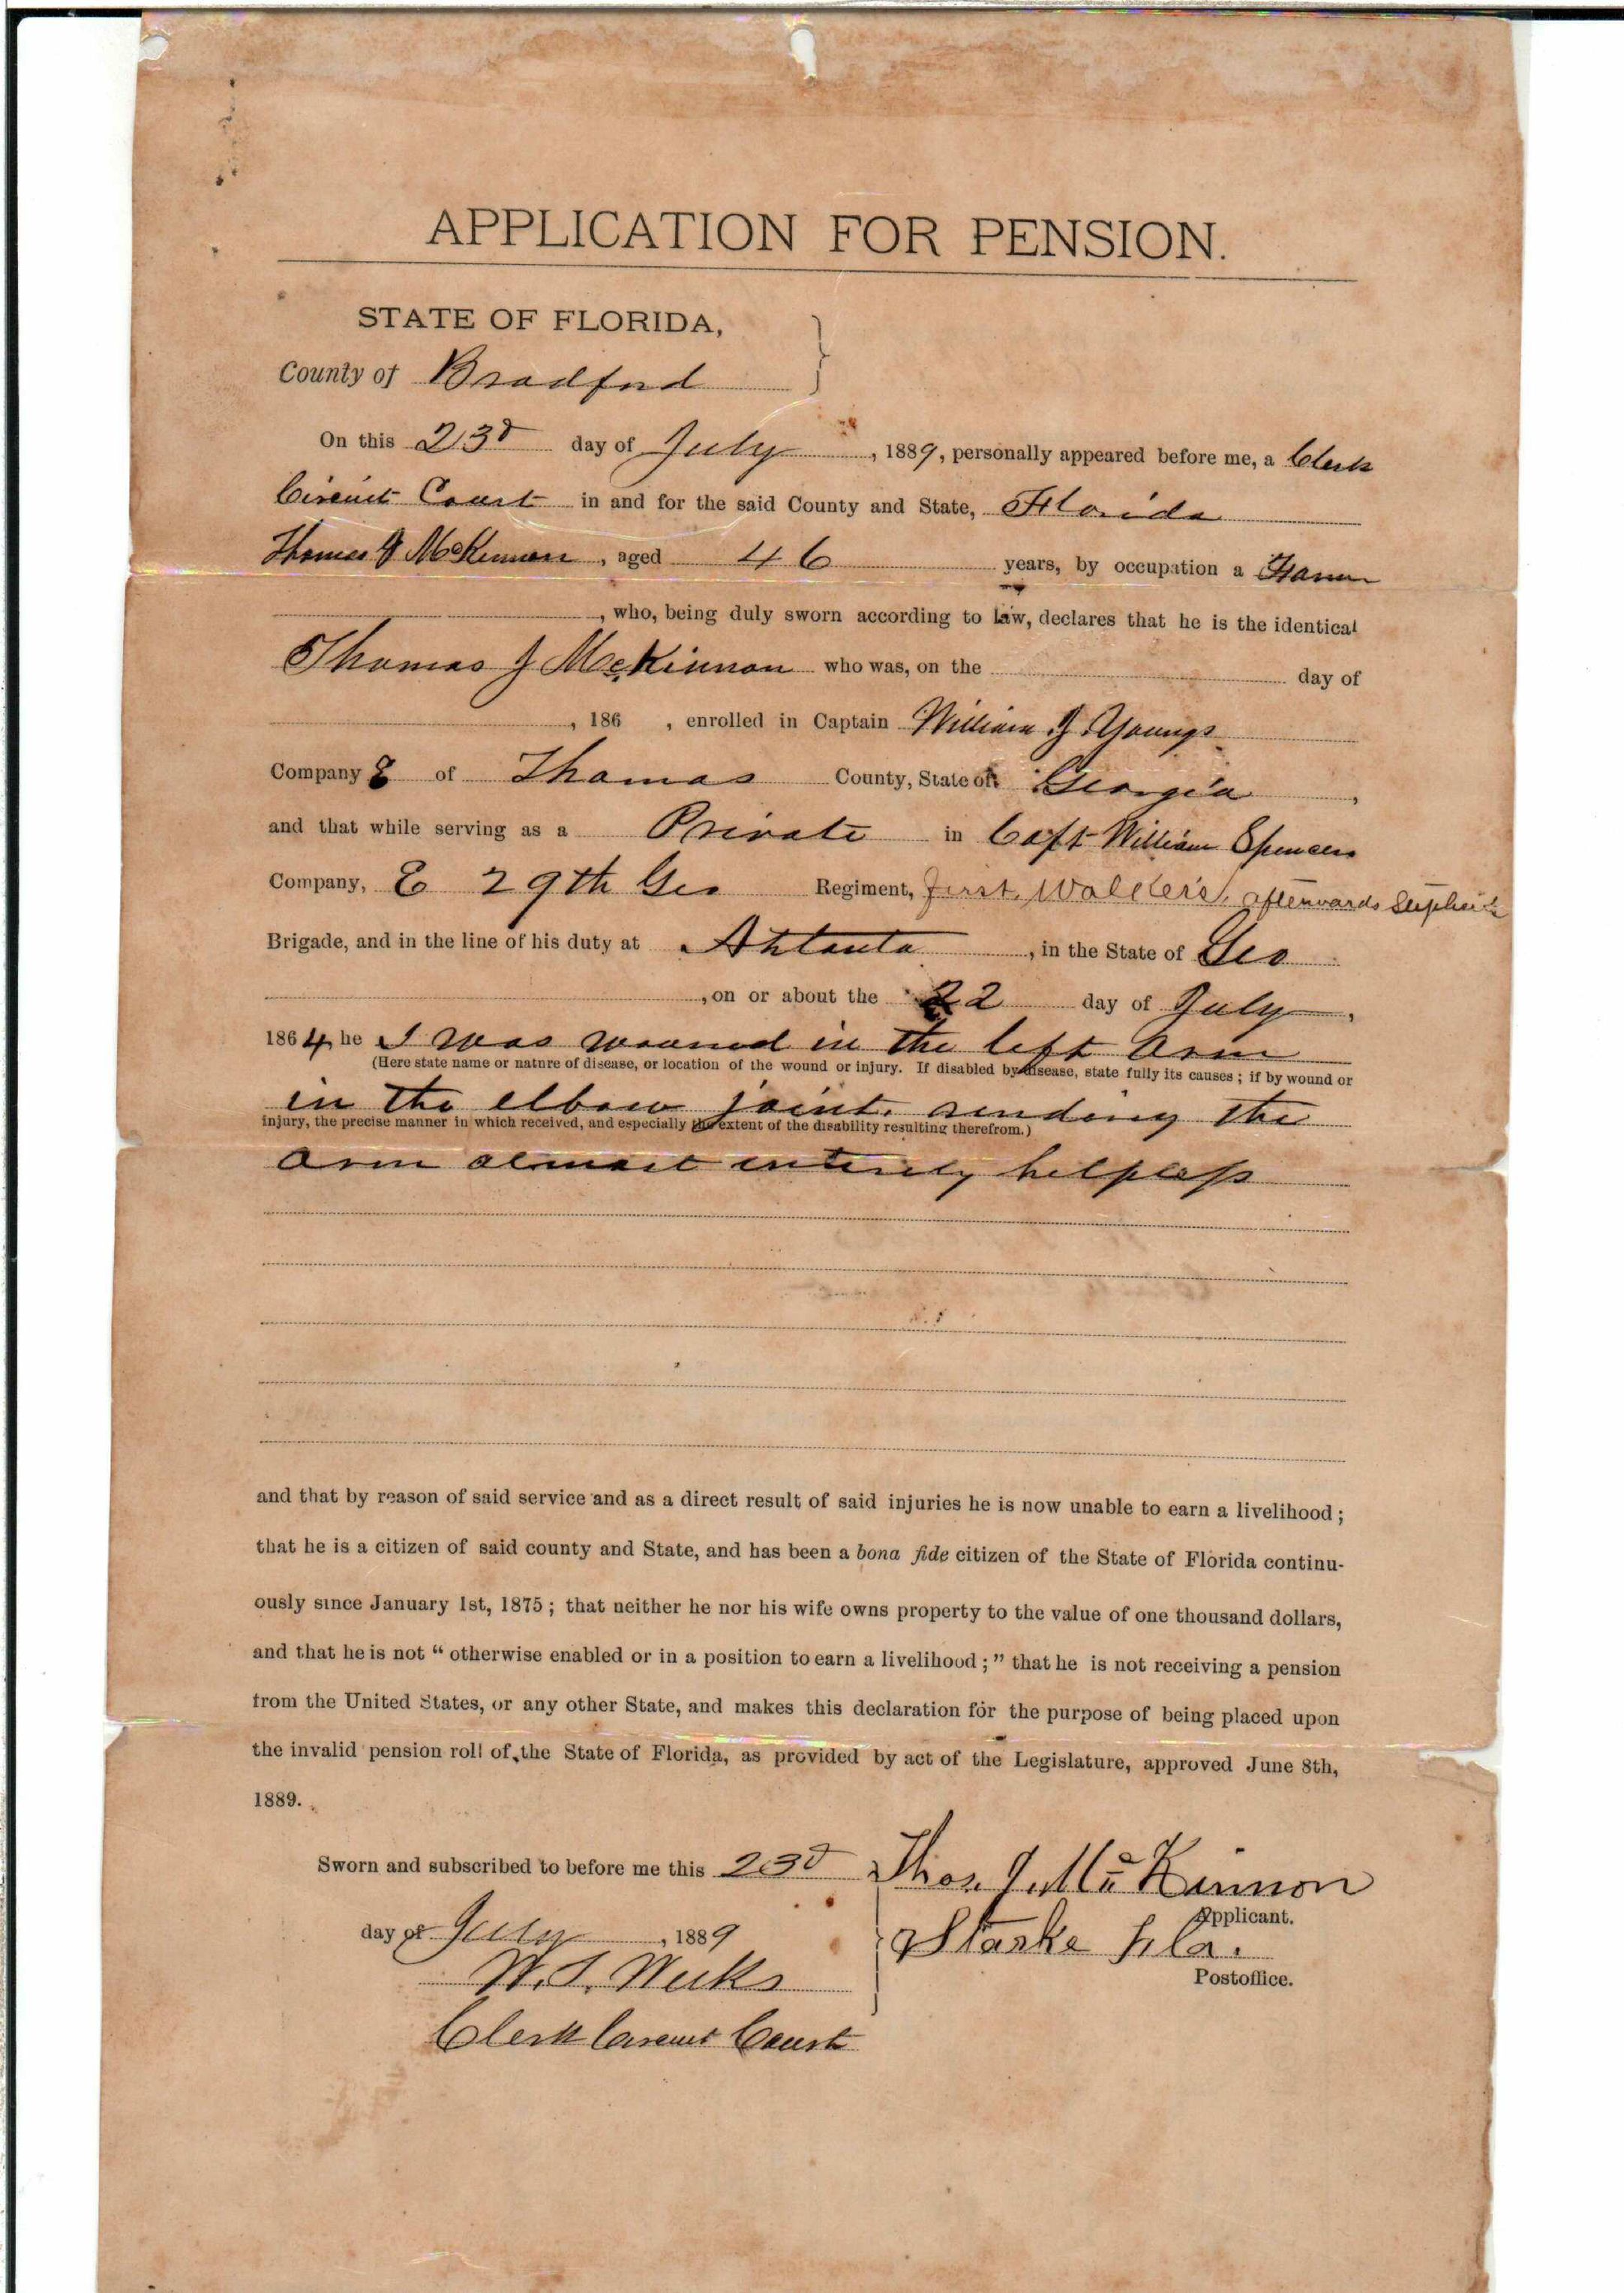 APPLICATION FOR PENSION.
STATE OF FLORIDA,
County of Bradford
On this 23d day of July, 1889, personally appeared before me, a Clerk
Circuit Court in and for the said County and State, Florida
Thomas J McKinnon, aged 46 years, by occupation a Farmer
, who, being duly sworn according to law, declares that he is the identical
Thomas J McKinnon who was, on the day of
, 186 , enrolled in Captain William J Youngs
Company E of Thomas County, State of Georgia,
and that while serving as a Private in Capt William Spencers
Company, E 29th Geo Regiment, first, Walker's, afterwards
Brigade, and in the line of his duty at Ahtlanta, in the State of Geo
, on or about the 22 day of July,
1864, he I was wound in the left arm
(Here state name or nature of disease, or location of the wound or injury. If disabled by disease, state fully its causes; if by wound or
in the elbow joint. rendeny the
injury, the precise manner in which received, and especially the extent of the disability resulting therefrom.)
arm almost entirely helpless
and that by reason of said service and as a direct result of said injuries he is now unable to earn a livelihood;
that he is a citizen of said county and State, and has been a bona fide citizen of the State of Florida continu-
ously since January 1st, 1875; that neither he nor his wife owns property to the value of one thousand dollars,
and that he is not "otherwise enabled or in a position to earn a livelihood;" that he is not receiving a pension
from the United States, or any other State, and makes this declaration for the purpose of being placed upon
the invalid pension roll of the State of Florida, as provided by act of the Legislature, approved June 8th,
1889.
Sworn and subscribed to before me this 23d Thos. J. McKinnon
Applicant.
day of July, 1889 Starke Fla.
W. S. Weeks Postoffice.
Clerk Circuit Court